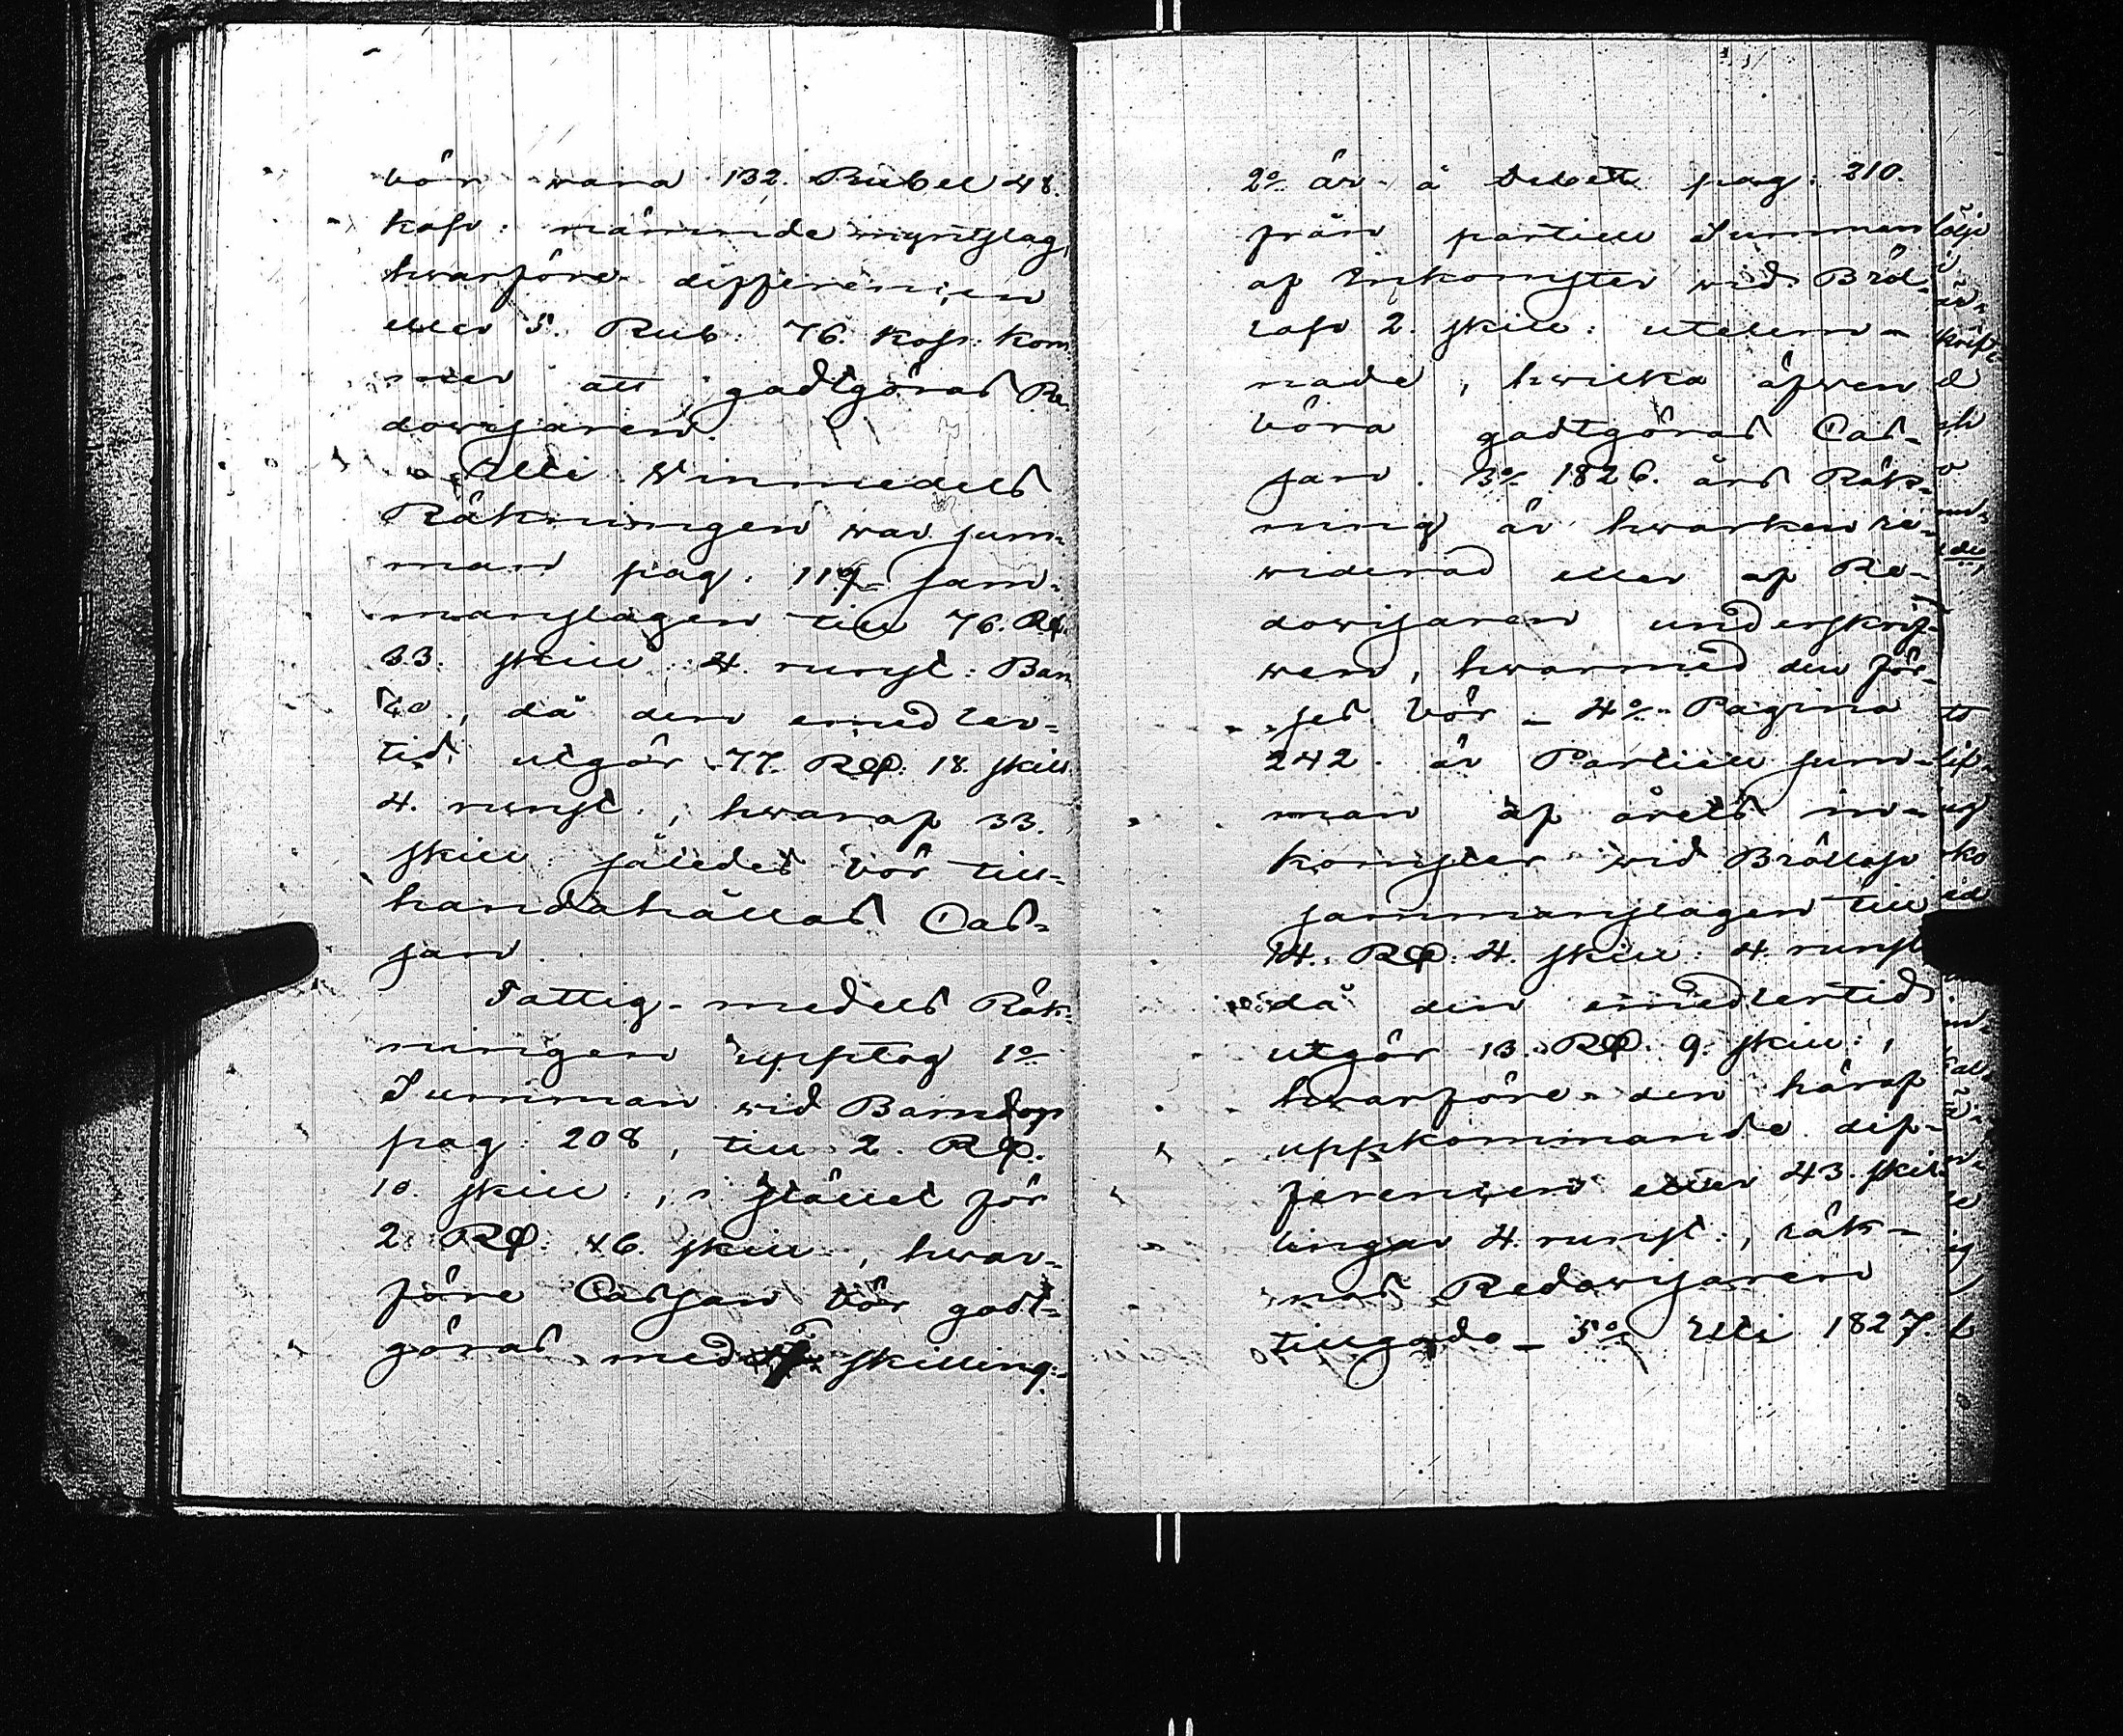 bör wara 132. Rubel 48.
kop: nämnde myntslag,
hwarföre differencen
eller 5. Rub: 76. kop: kom¬
mer att godtgöras Re¬
dowisaren.
Uti Winmedels
Räkningen war sum¬
man pag: 119 sam¬
manslagen till 76. Rd
33. skill: 4. runst: Ban
co, då den emedler¬
tid utgör 77. Rd: 18. skill
4. runst:, hwaraf 33.
skill: således bör till¬
handahållas Cas¬
san.
Fattig-medels Räk¬
ningen upptog 1o
Summan wid Barndop
pag: 208, till 2. Rd.
10. skill:, i stället för
2 Rd: 46. skill:, hwar¬
före Cassan bör godt¬
göras med skilling:
2o är å Debet pag: 210.
från partiell Summan
af Inkomster wid Bröl¬
lop 2. skill: utelem¬
nade, hwilka äfwen
böra godtgöras Cas¬
san. 3o 1826. års Räk¬
ning är hwarken re¬
widerad eller af Re¬
dowisaren underskrif¬
wen, hwarmed den för¬
ses bör – 4o Pagina
242. är Partiell sum¬
man af årets in¬
komster wid Bröllop
sammanslagen till
14. Rd: 4. skill: 4. runst
då den emedlertid
utgör 13. Rd. 9. skill:,
hwarföre den häraf
uppkommande dif¬
ferencen eller 43. skil¬
lingar 4. runst:, räk¬
nas Redowisaren
tillgodo – 5o Uti 1827.